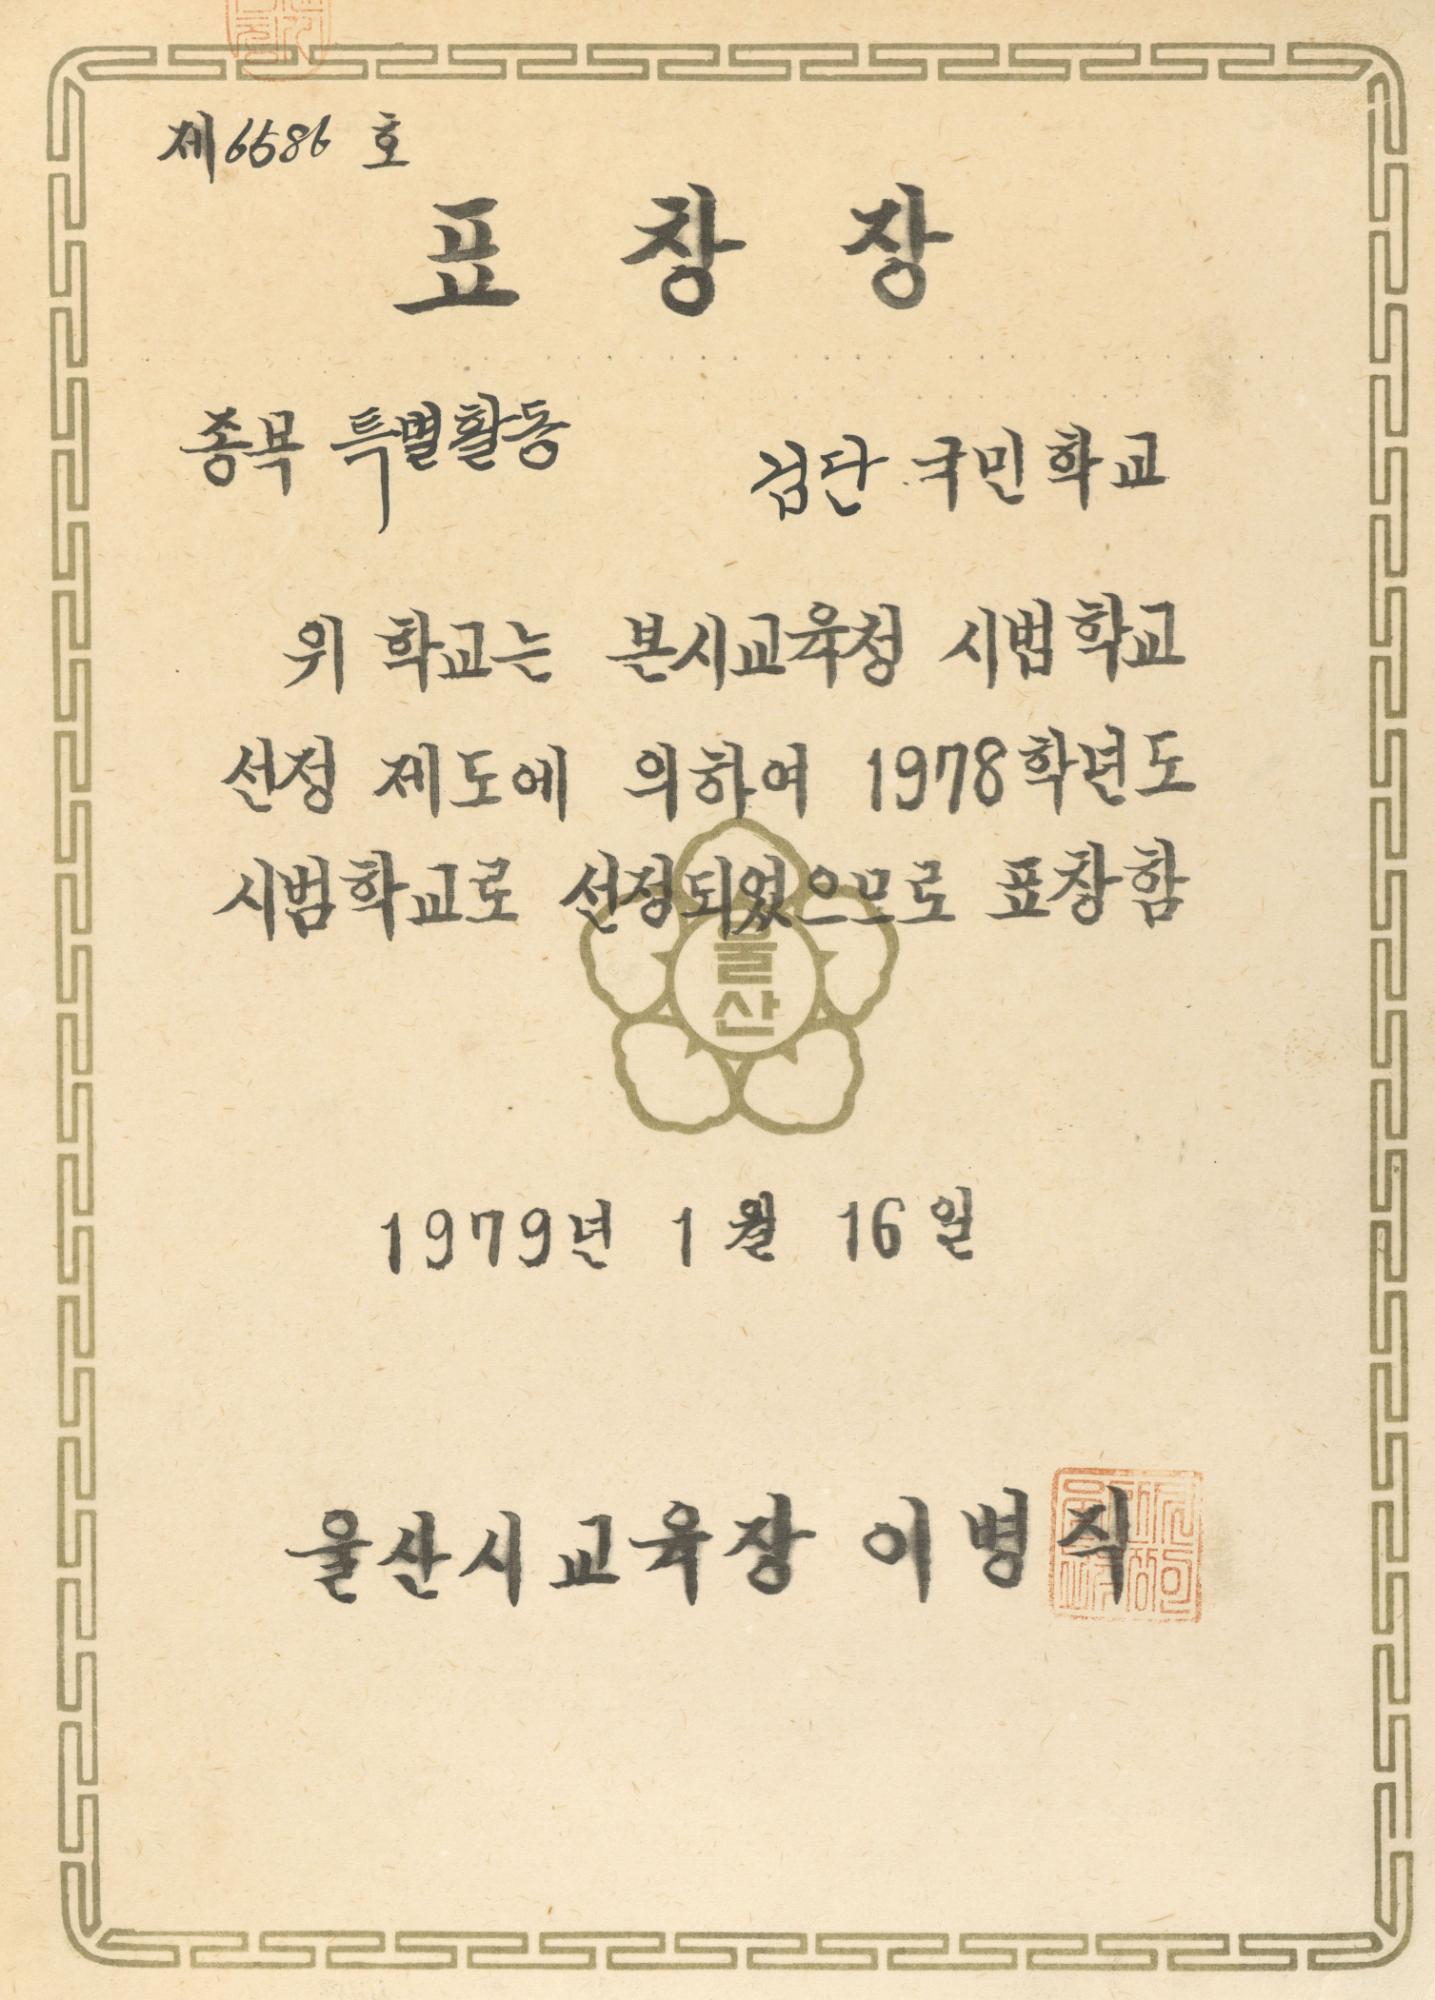 제6586 호
표창장
종목 특별활동
검단 국민학교
위 학교는 본시교육청 시범학교
선정 제도에 의하여 1978학년도
시범학교로 선정되었으므로 표창함
울산
1979년 1월 16일
울산시교육장 이병직